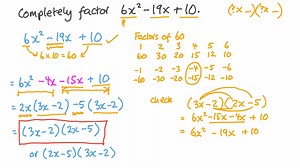 Completely factor 6x² -19x +10.
(?x - )(?x - )
6x² -19x +10 ✓
6x10 = 60
= 6x² -4x -15x +10
= 2x(3x-2) -5(3x-2)
= (3x-2)(2x-5)
or (2x-5)(3x-2)
Factors of 60
1 2 3 4 5 6
60 30 20 15 12 10
-1 -2 -3 -4 -5 -6
-60 -30 -20 -15 -12 -10
check
(3x-2)(2x-5)
= 6x² -15x -4x +10
= 6x² -19x +10